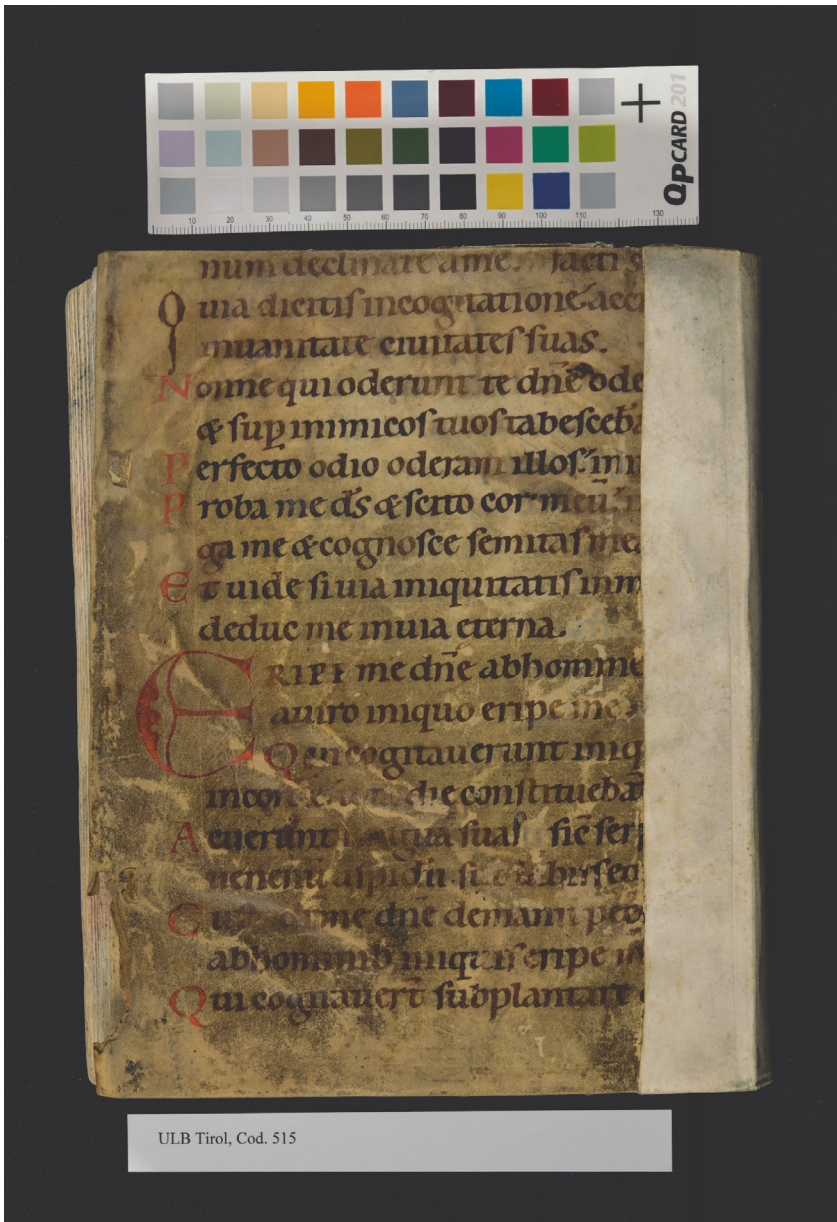 10 20 30 40 50 60 70 80 90 100 110 130
QPCARD 201
num declinate a me.
Quia dicitis incogitatione acci
inuanitate ciuitates suas.
Nonne qui oderunt te dn̄e ode
& sup̱ inimicos tuos tabesceb
Perfecto odio oderam illos: in
Proba me ds̄ & scito cor meū:
ga me & cognosce semitas me
Et uide si uia iniquitatis in m
deduc me in uia eterna.
ERIPE me dn̄e ab homine
a uiro iniquo eripe me
Qui cogitauerunt iniq
in corde die constituebā
Acuerunt lingua suas sic̄ ser
uenenū aspidū
Custodi me dn̄e de manu pecc
ab hominib iniquis eripe m
Qui cogitauer̄t subplantare
ULB Tirol, Cod. 515